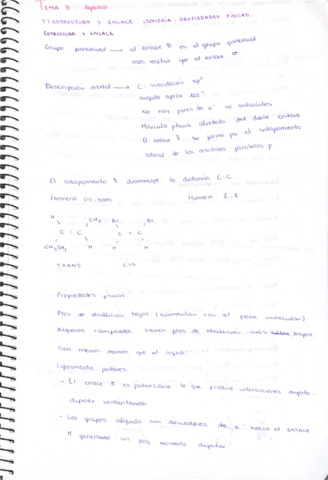 TEMA 3 : Alquenos
1) ESTRUCTURA Y ENLACE. ISOMERÍA. PROPIEDADES FÍSICAS.
ESTRUCTURA Y ENLACE
Grupo funcional → el enlace π es el grupo funcional
mas reactivo que el enlace σ
Descripción orbital → C. hibridación sp²
ángulo aprox 120°
No hay pares de e⁻ no enlazados
Molécula plana alrededor del doble enlace
El enlace π se forma por el solapamiento
lateral de los orbitales paralelos p
El solapamiento π disminuye la distancia C-C
Isomero cis, trans Isomero Z, E
H CH₃ Br Br
C = C C = C
CH₃CH₂ H H H
TRANS CIS
Propiedades físicas
Ptos de ebullición bajos (aumentan con el peso molecular)
Alquenos ramificados tienen ptos de ebullición más bajos.
Son menos densos que el agua.
Ligeramente polares.
- El enlace π es polarizable lo que produce interacciones dipolo-
dipolo instantáneos
- Los grupos alquilo son donadores de e⁻ hacia el enlace
π generando un peq momento dipolar.